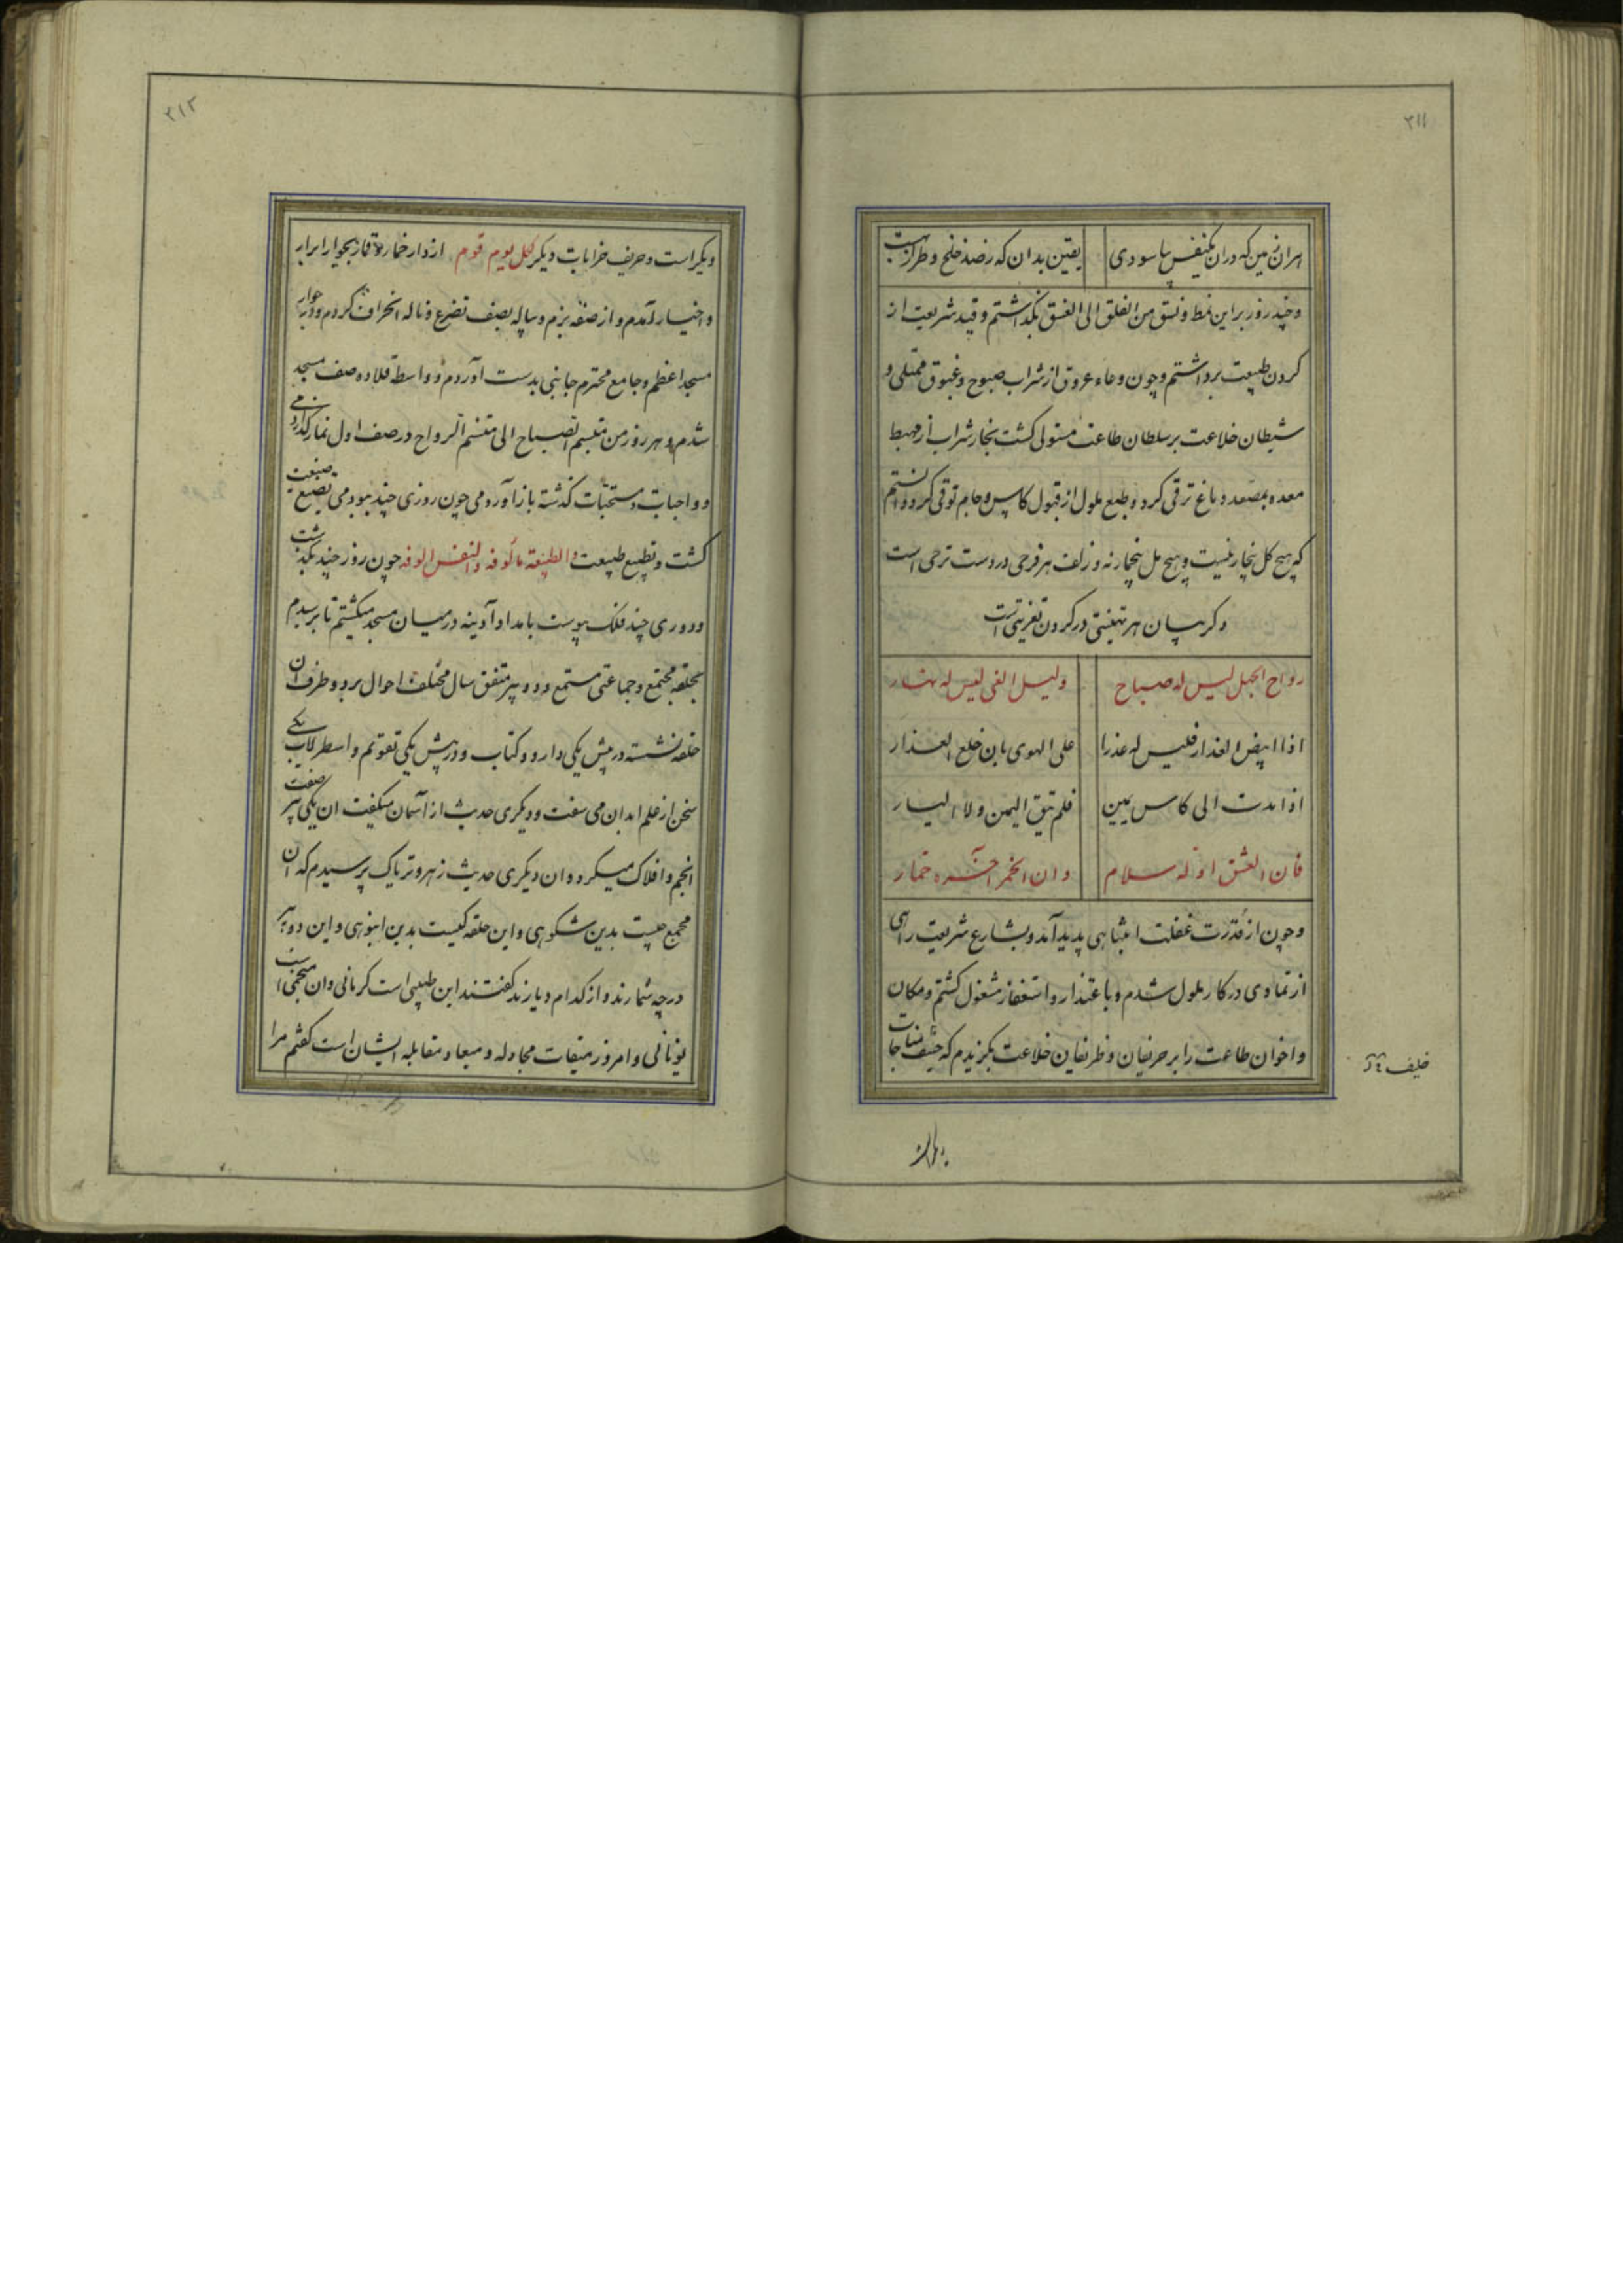 ۲۱۱
هران زمین که دران یکنفس بیاسودی یقین بدان که ز صد خلخ و طراز بهست
و چند روز بر این نمط و نسق من الفلق الی الغسق بگذاشتم و قید شریعت از
کردن طبیعت برداشتم و چون وعاء عروق از شراب صبوح و غبوق ممتلی و
شیطان خلاعت بر سلطان طاعت مستولی کشت بخار شراب از مهبط
معده بمصعد دماغ ترقی کرد و طبع ملول از قبول کاس و جام توقی کرد و دانستم
که هیچ کل بیخار نیست و هیچ مل بیخمار نه و زلف هر فرحی در دست ترحی است
و کریبان هر تهنیتی در کردن تعزیتی است
رواح الجهل لیس له صباح ولیل الغی لیس له نهار
اذا ابیض العذار فلیس له عذرا علی الهوی بان خلع العذار
اذا مدت الی کاس یمین فلم تبق الیمن ولا الیسار
فان العشق اوله سلام وان الخمر آخره خمار
و چون از قدرت غفلت انتباهی پدید آمد و بشارع شریعت راهی
از تمادی در کار ملول شدم و باعتذار و استغفار مشغول کشتم و مکان
و اخوان طاعت را بر حریفان و ظریفان خلاعت بکزیدم که مناجات
۲۱۲
دیکر است و حریف خرابات دیکر کل یوم قوم از دار خمار و قمار بجوار ابرار
و اخیار آمدم و از صفه بزم و پیاله بصف تضرع و ناله انحراف کردم و در جوار
مسجد اعظم و جامع محترم جانبی بدست آوردم و واسطة قلاده صف مسجد
شدم و هر روز من متبسم الصباح الی متنسم الرواح در صف اول نماز کذاردمی
و واجبات و مستحبات کذشته باز آوردمی چون روزی چند ببودمی صنیعت
کشت و تطبع طبیعت و الطبیعة مألوفه والنفس الوفه چون روز چند بکذشت
و دوری چند فلک بپوست بامداد آدینه در میان مسجد میکشتم تا برسیدم
بحلقه مجتمع و جماعتی مستمع و دو پیر متفق سال مختلف احوال بر دو طرف ان
حلقه نشسته در پیش یکی دارو و کتاب و در پیش یکی تقویم و اسطرلاب یکی
سخن از علم ابدان می سفت و دیکری حدیث از آسمان میکفت ان یکی صفت
انجم و افلاک میکرد و ان دیکری حدیث زهر و تریاک پرسیدم که ان
مجمع چیست بدین شکوهی و این حلقه کیست بدین انبوهی و این دو پیر
در چه شمارند و از کدام دیارند کفتند این طبیبی است کرمانی و ان منجمی است
یونانی و امروز میقات مجادله و میعاد مقابله ایشان است کفتم مرا